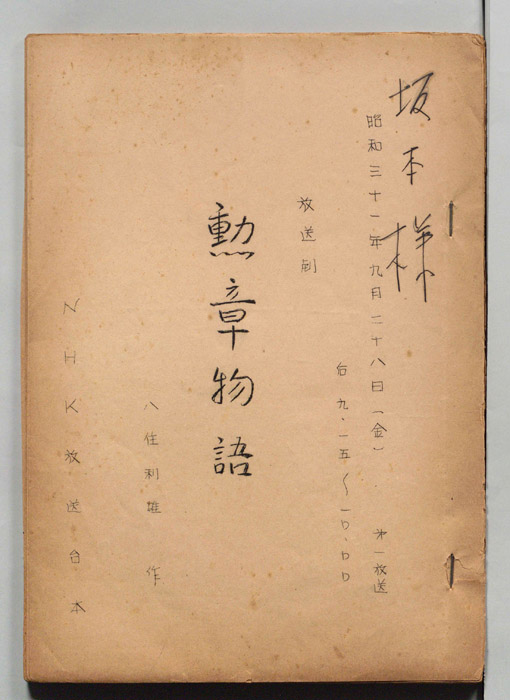 坂本様
昭和三十一年九月二十八日（金） 第一放送
后九.一五〜一〇.〇〇
放送劇
勲章物語
八住利雄 作
NHK放送台本